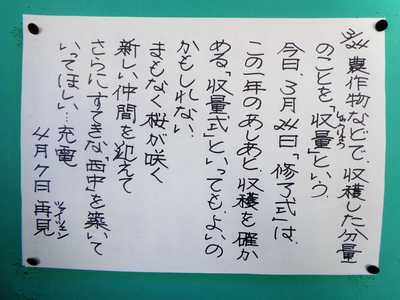 3/24 農作物などで、収穫した分量
のことを「収量」という。
しゅうりょう
今日、3月24日「修了式」は、
この一年のあしあと、収穫を確か
める「収量式」といっても、よいの
かもしれない。
まもなく桜が咲く
新しい仲間を迎えて
さらにすてきな「西中」を築いて
いってほしい…充電
4月7日 再見
ツァイツェン